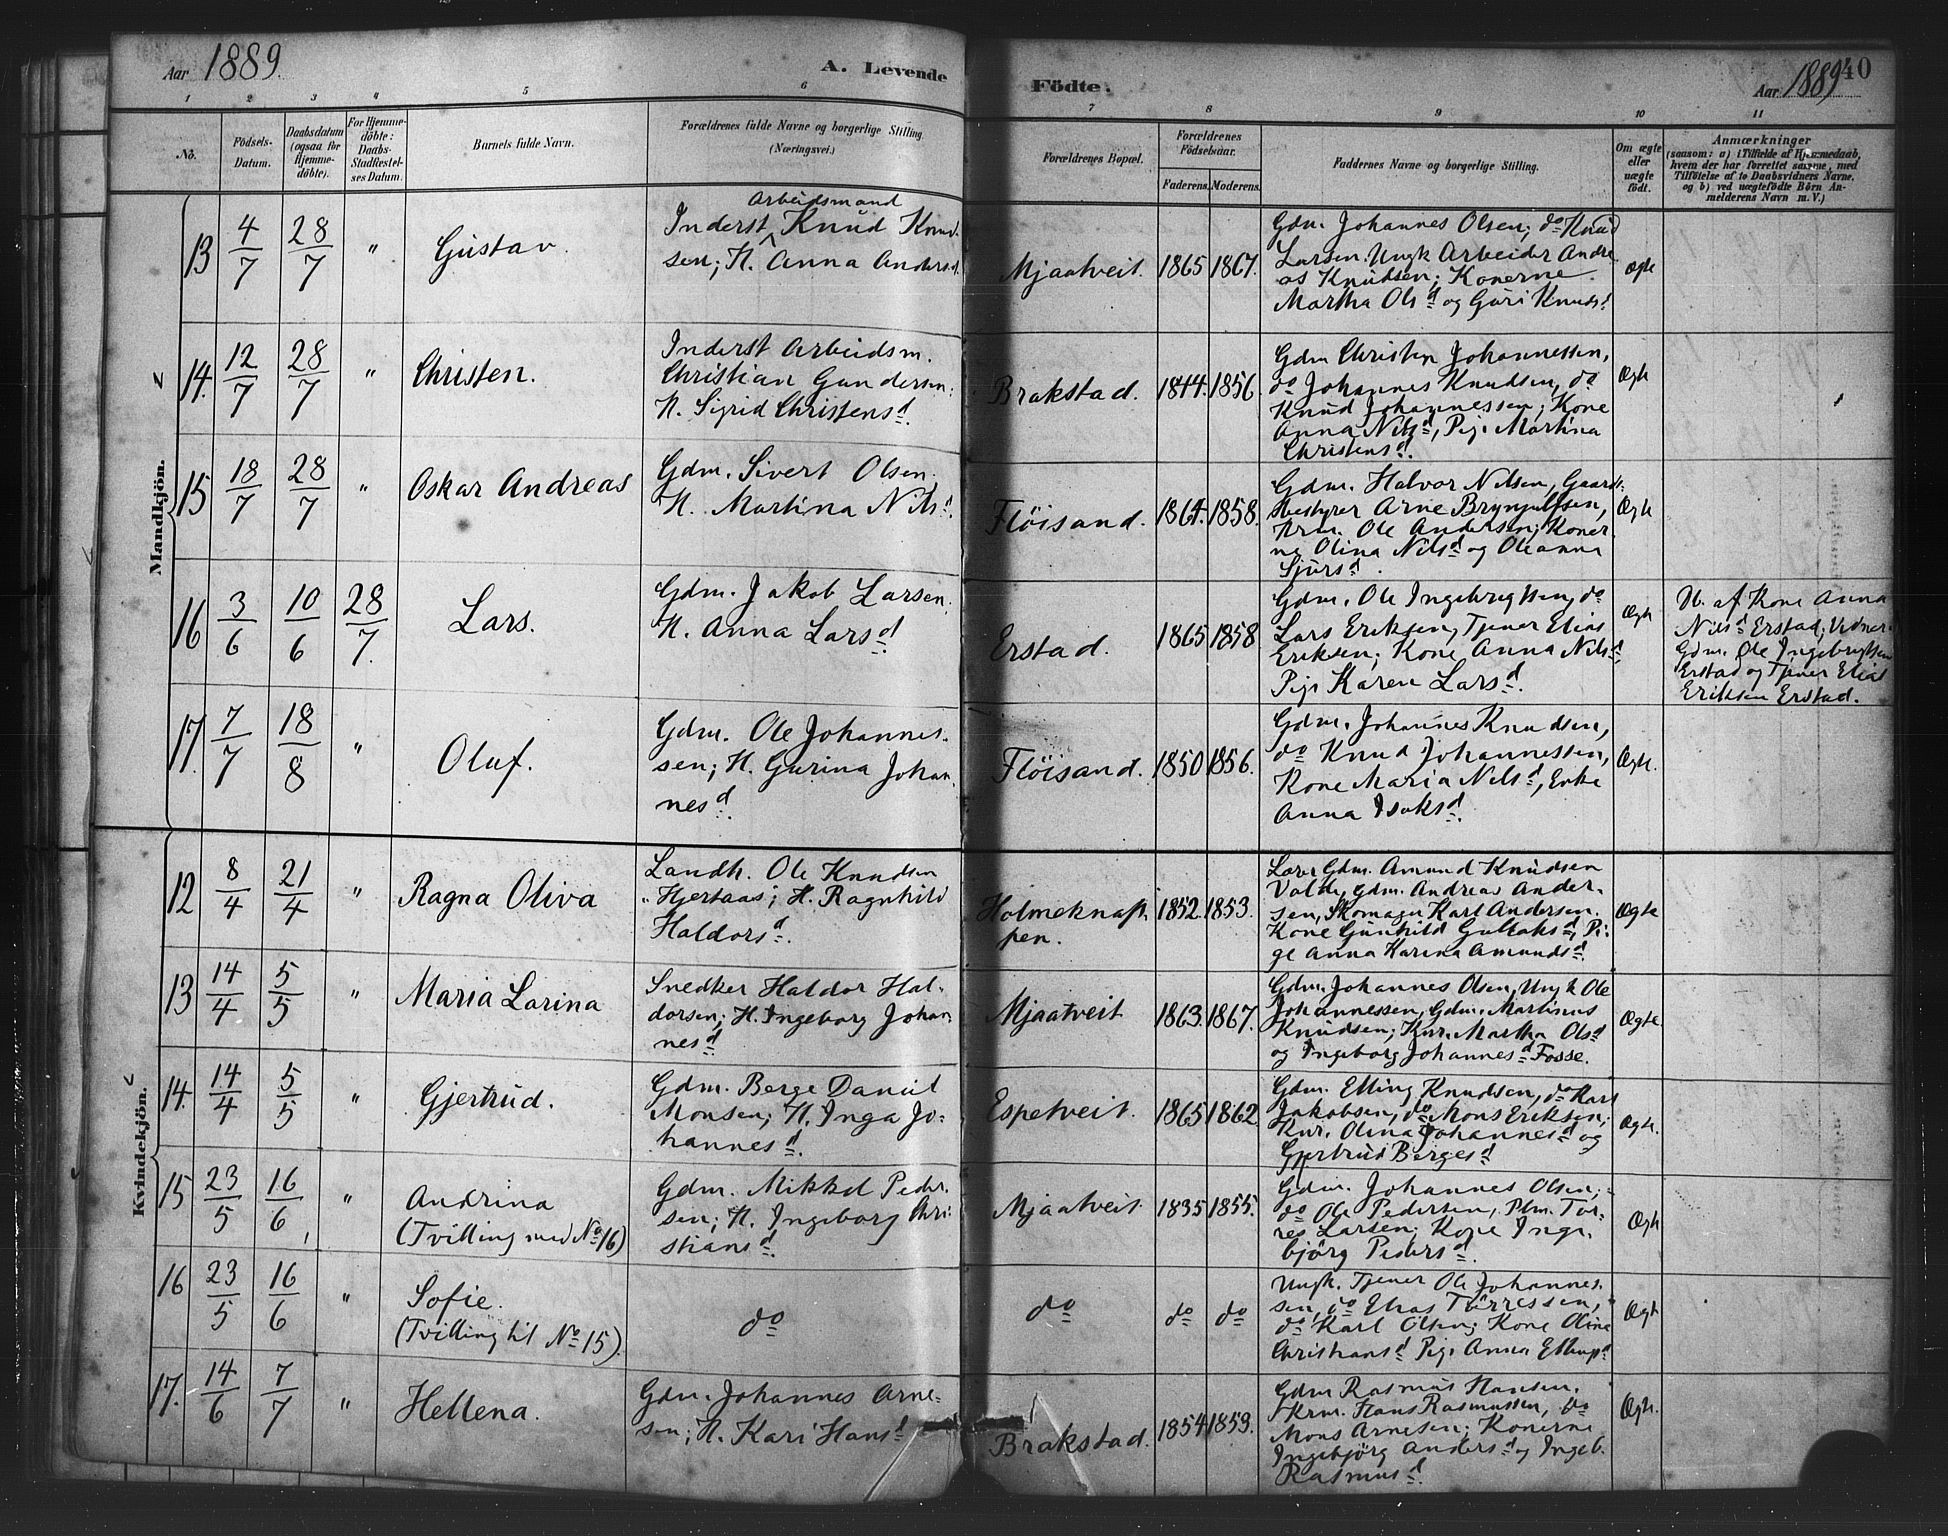 Aar 1889.
A. Levende
Födte.
Aar 1889
40
1 2 3 4 5 6 7 8 9 10 11
No.
Födsels-
Datum.
Daabsdatum
(ogsaa for
Hjemme-
döbte).
For Hjemme-
döbte:
Daabs-
Stadfestel-
ses Datum.
Barnets fulde Navn.
Forældrenes fulde Navne og borgerlige Stilling
(Næringsvei.)
Forældrenes Bopæl.
Forældrenes
Födselsaar.
Faderens. Moderens.
Faddernes Navne og borgerlige Stilling.
Om ægte
eller
uægte
födt.
Anmærkninger
(saasom: a) i Tilfælde af Hjemmedaab,
hvem der har forrettet samme, med
Tilföielse af to Daabsvidners Navne,
og b) ved uægtefödte Börn An-
melderens Navn m. V.)
Mandkjön.
13 4/7 28/7 " Gustav.
Arbeidsmand
Inderst Knud Knud-
sen; H. Anna Andersd.
Mjaatveit. 1865 1867.
Gdm. Johannes Olsen; do Knud
Larsen. Ungk Arbeider Andre
as Knudsen; Konerne
Martha Olsd og Guri Knudsd
Ægte
14. 12/7 28/7 " Christen.
Inderst Arbeidsm.
Christian Gundersen.
H. Sigrid Christensd.
Brakstad. 1844. 1856
Gdm Christen Johannessen,
do Johannes Knudsen, do
Knud Johannessen; Kone
Anna Nilsd, Pige Martina
Christensd.
Ægte
15 18/7 28/7 " Oskar Andreas
Gdm. Sivert Olsen.
H. Martina Nilsd.
Flöisand. 1864. 1858.
Gdm. Halvor Nilsen, Gaards-
bestyrer Arne Brynjulfsen,
Krm. Ole Andersen; Koner
ne Olina Nilsd og Oleanna
Sjursd.
Ægte
16 3/6 10/6 28/7. Lars.
Gdm. Jakob Larsen.
H. Anna Larsd
Erstad. 1865 1858
Gdm. Ole Ingebrigtsen, do
Lars Eriksen, Tjener Elias
Eriksen; Kone Anna Nilsd,
Pige Karen Larsd.
Ægte
Ub. af Kone Anna
Nilsd Erstad; Vidner
Gdm. Ole Ingebrigtsen
Erstad og Tjener Elias
Eriksen Erstad.
17. 7/7 18/8 " Oluf.
Gdm. Ole Johannes-
sen; H. Gurina Johan
nesd.
Flöisand. 1850 1856.
Gdm. Johannes Knudsen,
do Knud Johannessen,
Kone Maria Nilsd, Enke
Anna Isaksd.
Ægte.
Kvindekjön.
12 8/4 21/4 " Ragna Oliva
Landh. Ole Knudsen
Hjertaas; H. Ragnhild
Haldorsd.
Holmeknap-
pen. 1852. 1853.
Lærer Gdm. Amund Knudsen
Gdm. Andreas Ander-
sen, Skomager Karl Andersen.
Kone Gunhild Gullaksd, Pi-
ge Anna Karina Amundsd.
Ægte
13 14/4 5/5 " Maria Larina
Snedker Haldor Hal-
dorsen; H. Ingeborg Johan
nesd
Mjaatveit 1863. 1867.
Gdm. Johannes Olsen, Ungk Ole
Johannessen, Gdm. Martinus
Knudsen; Knr. Martha Olsd
og Ingeborg Johannesd Fosse.
Ægte.
14. 14/4 5/5 " Gjertrud.
Gdm. Berge Daniel
Monsen; H. Inga Jo-
hannesd.
Espetveit. 1865 1862
Gdm. Elling Knudsen, do Karl
Jakobsen, do Mons Eriksen;
Knr. Olina Johannesd og
Gjertrud Bergesd
Ægte.
15 23/5 16/6 " Andrina
(Tvilling med No 16)
Gdm. Mikkel Peder-
sen; H. Ingeborg Chri-
stiansd.
Mjaatveit 1835 1855.
Gdm. Johannes Olsen;
do Ole Pedersen, Plm. Tor-
res Larsen; Kone Inge
björg Pedersd.
Ægte
16 23/5 16/6 " Sofie.
(Tvilling til No 15).
do
do do do
Ungk. Tjener Ole Johannes-
sen, do Elias Törressen,
do Karl Olsen; Kone Olina
Christiansd Pige Anna Ellingsd
Ægte
17. 14/6 7/7 " Hellena.
Gdm. Johannes Arne-
sen; H. Kari Hansd
Brakstad. 1854 1859.
Gdm Rasmus Hansen,
Krm. Hans Rasmussen, do
Mons Arnesen; Konerne
Ingebjörg Andersd og Ingeb.
Rasmusd.
Ægte.